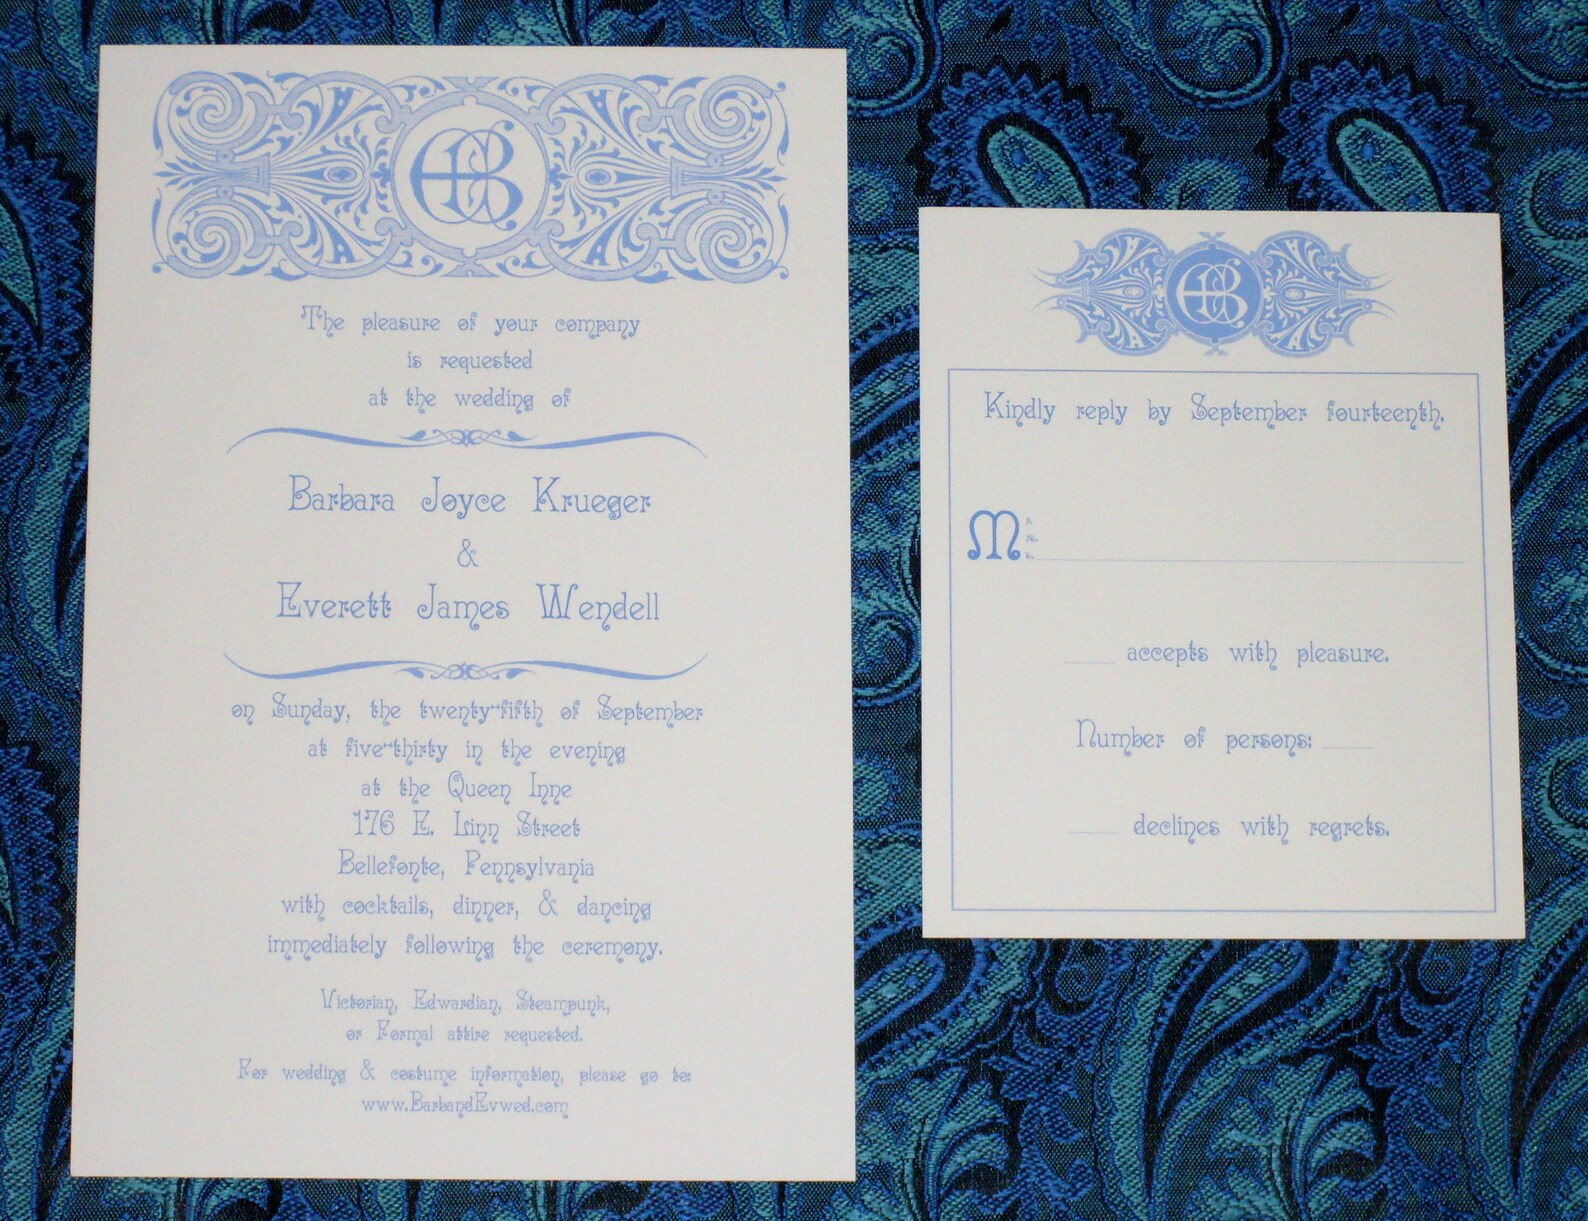 EB
The pleasure of your company
is requested
at the wedding of
Barbara Joyce Krueger
&
Everett James Wendell
on Sunday, the twenty-fifth of September
at five-thirty in the evening
at the Queen Inne
176 E. Linn Street
Bellefonte, Pennsylvania
with cocktails, dinner, & dancing
immediately following the ceremony.
Victorian, Edwardian, Steampunk,
or Formal attire requested.
For wedding & costume information, please go to:
www.BarbandEvwed.com
EB
Kindly reply by September fourteenth.
M
accepts with pleasure.
Number of persons:
declines with regrets.